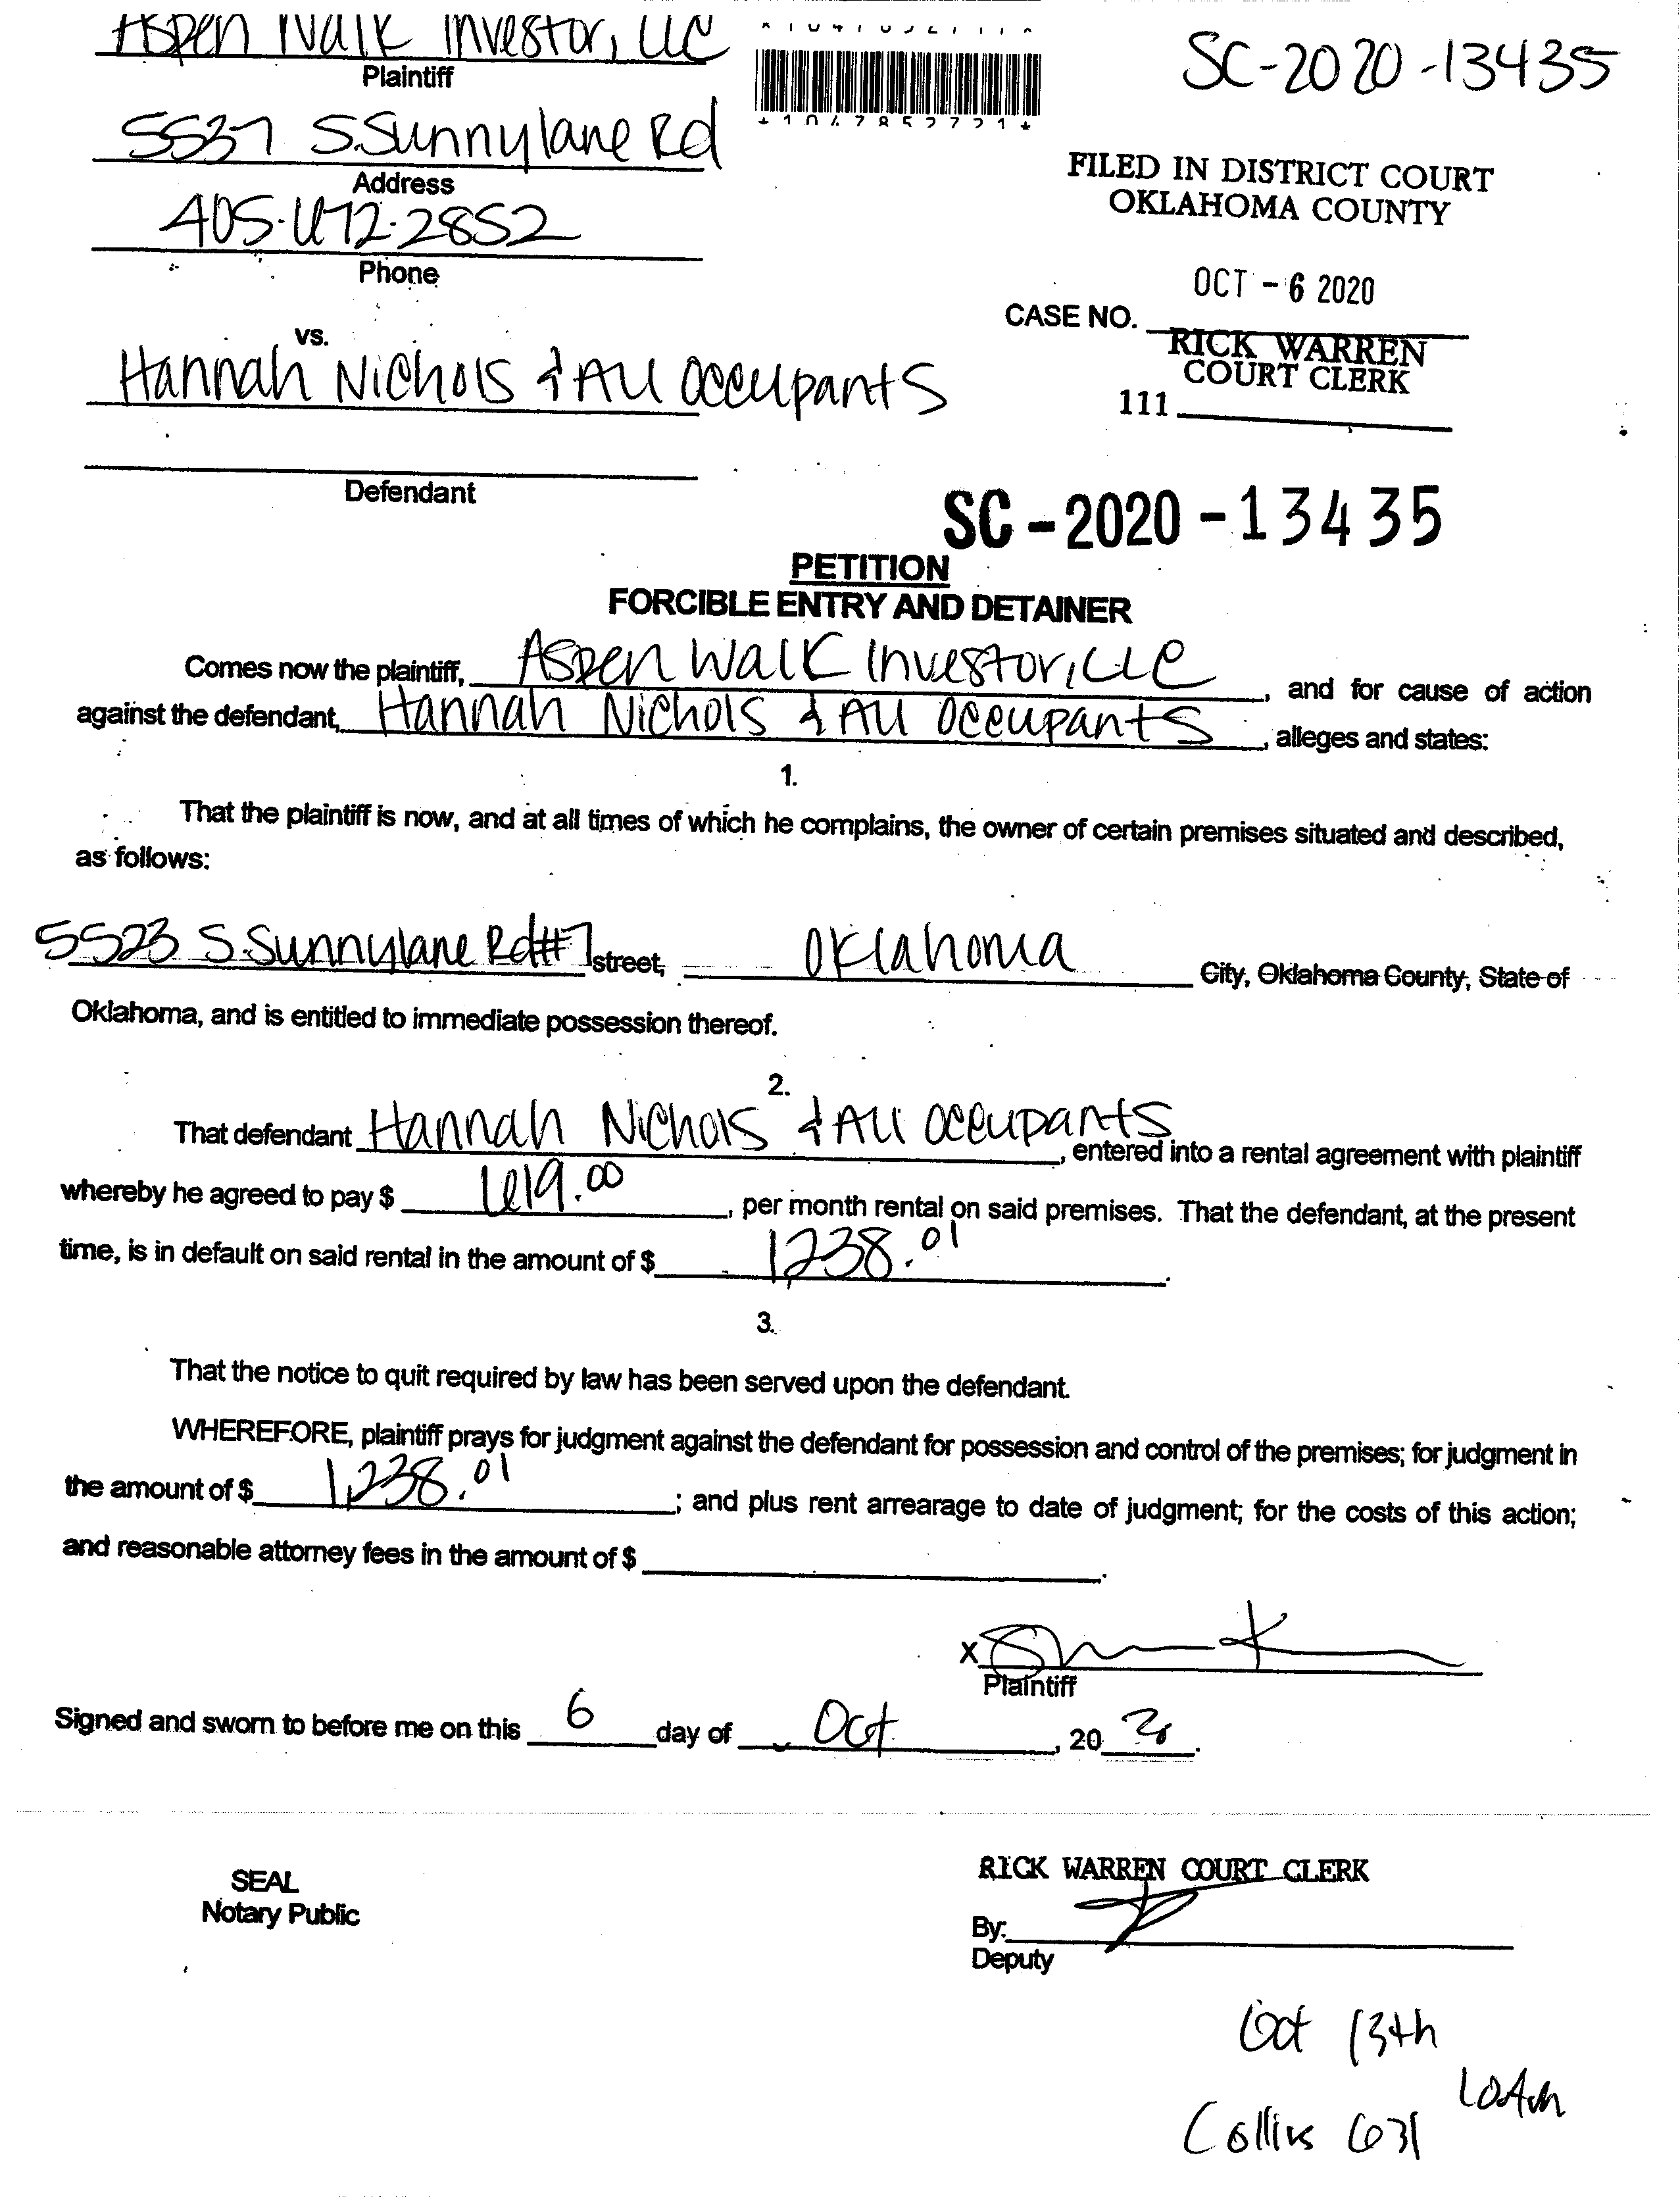 Aspen Walk Investor, LLC
Plaintiff
SC-2020-13435
5537 S. Sunnylane Rd
*1047852721*
Address
FILED IN DISTRICT COURT
OKLAHOMA COUNTY
405-672-2852
Phone
OCT - 6 2020
CASE NO.
RICK WARREN
COURT CLERK
vs.
Hannah Nichols & All Occupants
111
Defendant
SC-2020-13435
PETITION
FORCIBLE ENTRY AND DETAINER
Comes now the plaintiff, Aspen Walk Investor, LLC, and for cause of action
against the defendant, Hannah Nichols & All Occupants, alleges and states:
1.
That the plaintiff is now, and at all times of which he complains, the owner of certain premises situated and described,
as follows:
5523 S. Sunnylane Rd #7 street, Oklahoma City, Oklahoma County, State of
Oklahoma, and is entitled to immediate possession thereof.
2.
That defendant Hannah Nichols & All Occupants, entered into a rental agreement with plaintiff
whereby he agreed to pay $ 619.00, per month rental on said premises. That the defendant, at the present
time, is in default on said rental in the amount of $ 1,238.01.
3.
That the notice to quit required by law has been served upon the defendant.
WHEREFORE, plaintiff prays for judgment against the defendant for possession and control of the premises; for judgment in
the amount of $ 1,238.01; and plus rent arrearage to date of judgment; for the costs of this action;
and reasonable attorney fees in the amount of $
X
Plaintiff
Signed and sworn to before me on this 6 day of Oct, 20 20.
SEAL
Notary Public
RICK WARREN COURT CLERK
By:
Deputy
Oct 13th
10Am
Collins 631